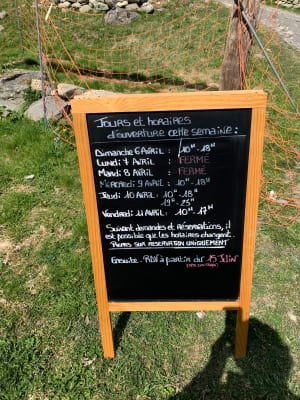 Jours et horaires
d'ouverture cette semaine :
Dimanche 6 Avril : 10H - 18H
Lundi 7 Avril : FERMÉ
Mardi 8 Avril : FERMÉ
Mercredi 9 Avril : 10H - 18H
Jeudi 10 Avril : 10H - 18H
Vendredi 11 Avril : 10H - 17H
Suivant demandes et réservations, il
est possible que les horaires changent.
Repas sur réservation uniquement
Ensuite : RDV à partir du 15 Juin